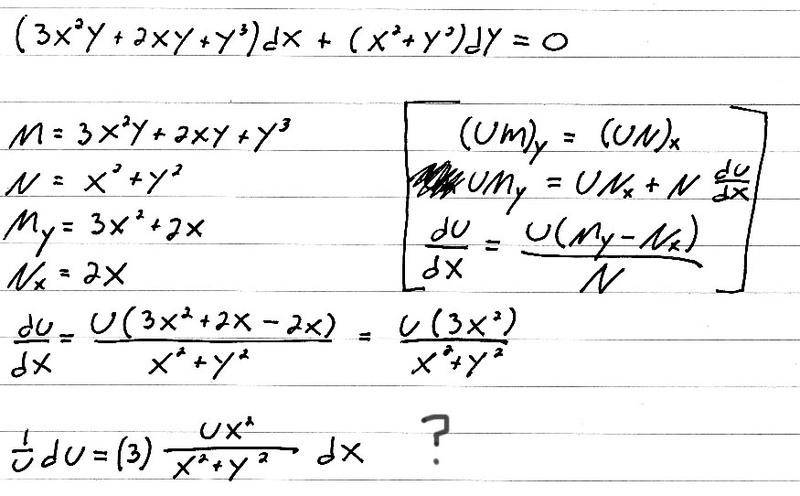 (3x²y + 2xy + y³)dx + (x² + y²)dy = 0
M = 3x²y + 2xy + y³
N = x² + y²
My = 3x² + 2x
Nx = 2x
(UM)y = (UN)x
UMy = UNx + N dU/dx
dU/dx = U(My - Nx)/N
dU/dx = U(3x² + 2x - 2x)/(x² + y²) = U(3x²)/(x² + y²)
1/U dU = (3) Ux²/(x² + y²) dx ?